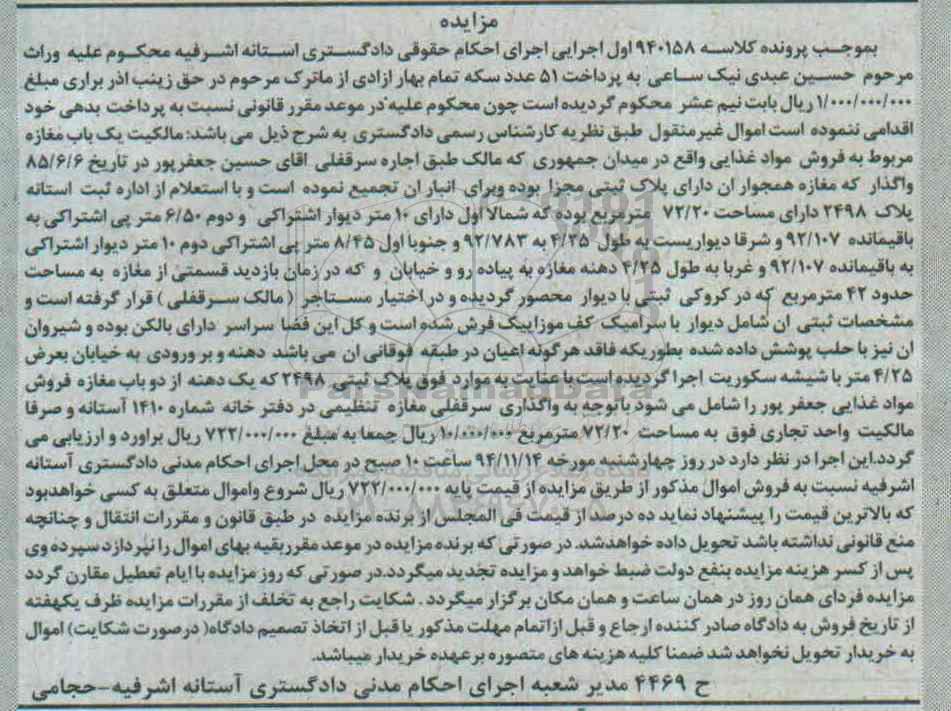 مزایده
بموجب پرونده کلاسه ۹۴۰۱۵۸ اول اجرایی اجرای احکام حقوقی دادگستری استانه اشرفیه محکوم علیه وراث
مرحوم حسین عبدی نیک ساعی به پرداخت ۵۱ عدد سکه تمام بهار ازادی از ماترک مرحوم در حق زینب اذر براری مبلغ
۱/۰۰۰/۰۰۰/۰۰۰ ریال بابت نیم عشر محکوم گردیده است چون محکوم علیه در موعد مقرر قانونی نسبت به پرداخت بدهی خود
اقدامی ننموده است اموال غیرمنقول طبق نظریه کارشناس رسمی دادگستری به شرح ذیل می باشد: مالکیت یک باب مغازه
مربوط به فروش مواد غذایی واقع در میدان جمهوری که مالک طبق اجاره سرقفلی اقای حسین جعفرپور در تاریخ ۸۵/۶/۶
واگذار که مغازه همجوار ان دارای پلاک ثبتی مجزا بوده وبرای انبار ان تجمیع نموده است و با استعلام از اداره ثبت استانه
پلاک ۲۴۹۸ دارای مساحت ۷۲/۲۰ مترمربع بوده که شمالا اول دارای ۱۰ متر دیوار اشتراکی و دوم ۶/۵۰ متر پی اشتراکی به
باقیمانده ۹۲/۱۰۷ و شرقا دیواریست به طول ۴/۳۵ به ۹۲/۷۸۳ و جنوبا اول ۸/۴۵ متر پی اشتراکی دوم ۱۰ متر دیوار اشتراکی
به باقیمانده ۹۲/۱۰۷ و غربا به طول ۴/۲۵ دهنه مغازه به پیاده رو و خیابان و که در زمان بازدید قسمتی از مغازه به مساحت
حدود ۴۲ مترمربع که در کروکی ثبتی با دیوار محصور گردیده و در اختیار مستاجر (مالک سرقفلی) قرار گرفته است و
مشخصات ثبتی ان شامل دیوار با سرامیک کف موزاییک فرش شده است و کل این فضا سراسر دارای بالکن بوده و شیروان
ان نیز با حلب پوشش داده شده بطوریکه فاقد هرگونه اعیان در طبقه فوقانی ان می باشد دهنه و بر ورودی به خیابان بعرض
۴/۲۵ متر با شیشه سکوریت اجرا گردیده است با عنایت به موارد فوق پلاک ثبتی ۲۴۹۸ که یک دهنه از دو باب مغازه فروش
مواد غذایی جعفر پور را شامل می شود با توجه به واگذاری سرقفلی مغازه تنظیمی در دفتر خانه شماره ۱۴۱۰ آستانه و صرفا
مالکیت واحد تجاری فوق به مساحت ۷۲/۲۰ مترمربع ۱۰/۰۰۰/۰۰۰ ریال جمعا به مبلغ ۷۲۲/۰۰۰/۰۰۰ ریال براورد و ارزیابی می
گردد.این اجرا در نظر دارد در روز چهارشنبه مورخه ۹۴/۱۱/۱۴ ساعت ۱۰ صبح در محل اجرای احکام مدنی دادگستری آستانه
اشرفیه نسبت به فروش اموال مذکور از طریق مزایده از قیمت پایه ۷۲۲/۰۰۰/۰۰۰ ریال شروع واموال متعلق به کسی خواهدبود
که بالاترین قیمت را پیشنهاد نماید ده درصد از قیمت فی المجلس از برنده مزایده در طبق قانون و مقررات انتقال و چنانچه
منع قانونی نداشته باشد تحویل داده خواهدشد. در صورتی که برنده مزایده در موعد مقرر بقیه بهای اموال را نپردازد سپرده وی
پس از کسر هزینه مزایده بنفع دولت ضبط خواهد و مزایده تجدید میگردد.در صورتی که روز مزایده با ایام تعطیل مقارن گردد
مزایده فردای همان روز در همان ساعت و همان مکان برگزار میگردد . شکایت راجع به تخلف از مقررات مزایده ظرف یکهفته
از تاریخ فروش به دادگاه صادر کننده ارجاع و قبل ازاتمام مهلت مذکور یا قبل از اتخاذ تصمیم دادگاه( درصورت شکایت) اموال
به خریدار تحویل نخواهد شد ضمنا کلیه هزینه های متصوره برعهده خریدار میباشد.
ح ۴۴۶۹ مدیر شعبه اجرای احکام مدنی دادگستری آستانه اشرفیه-حجامی
ParsNamadData